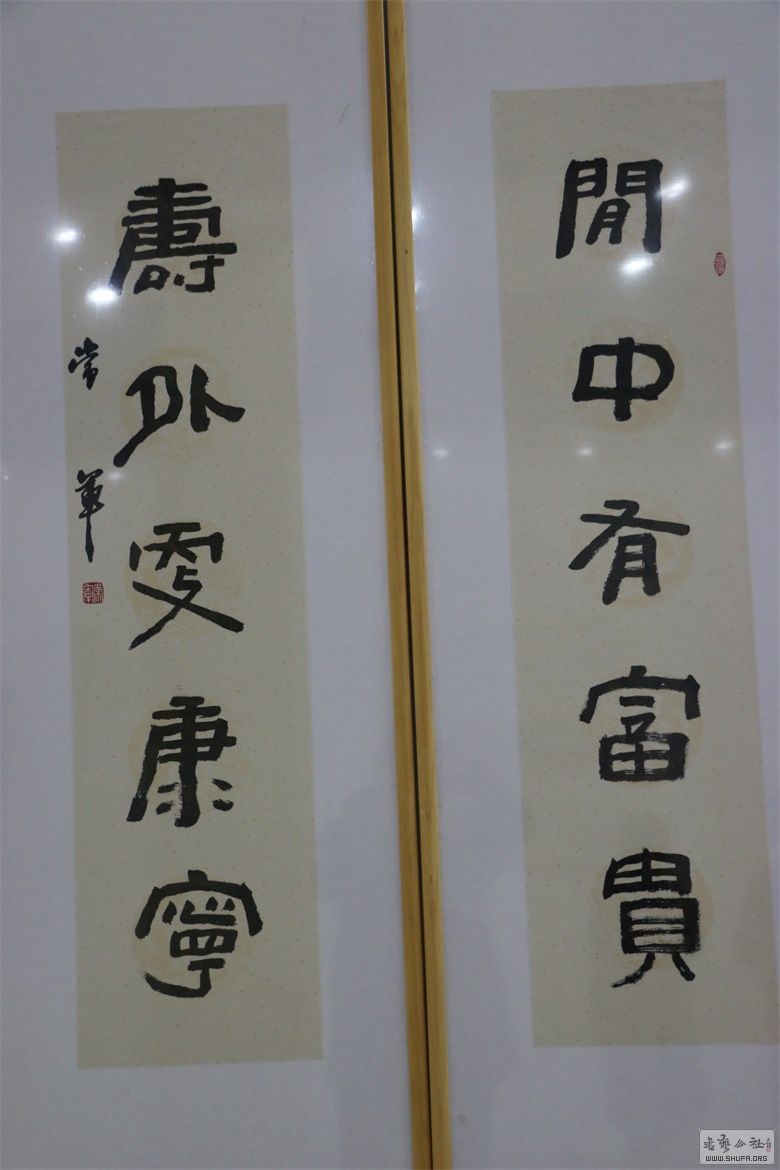 閒中有富貴
壽外更康寧
常軍
WWW.SHUFA.ORG